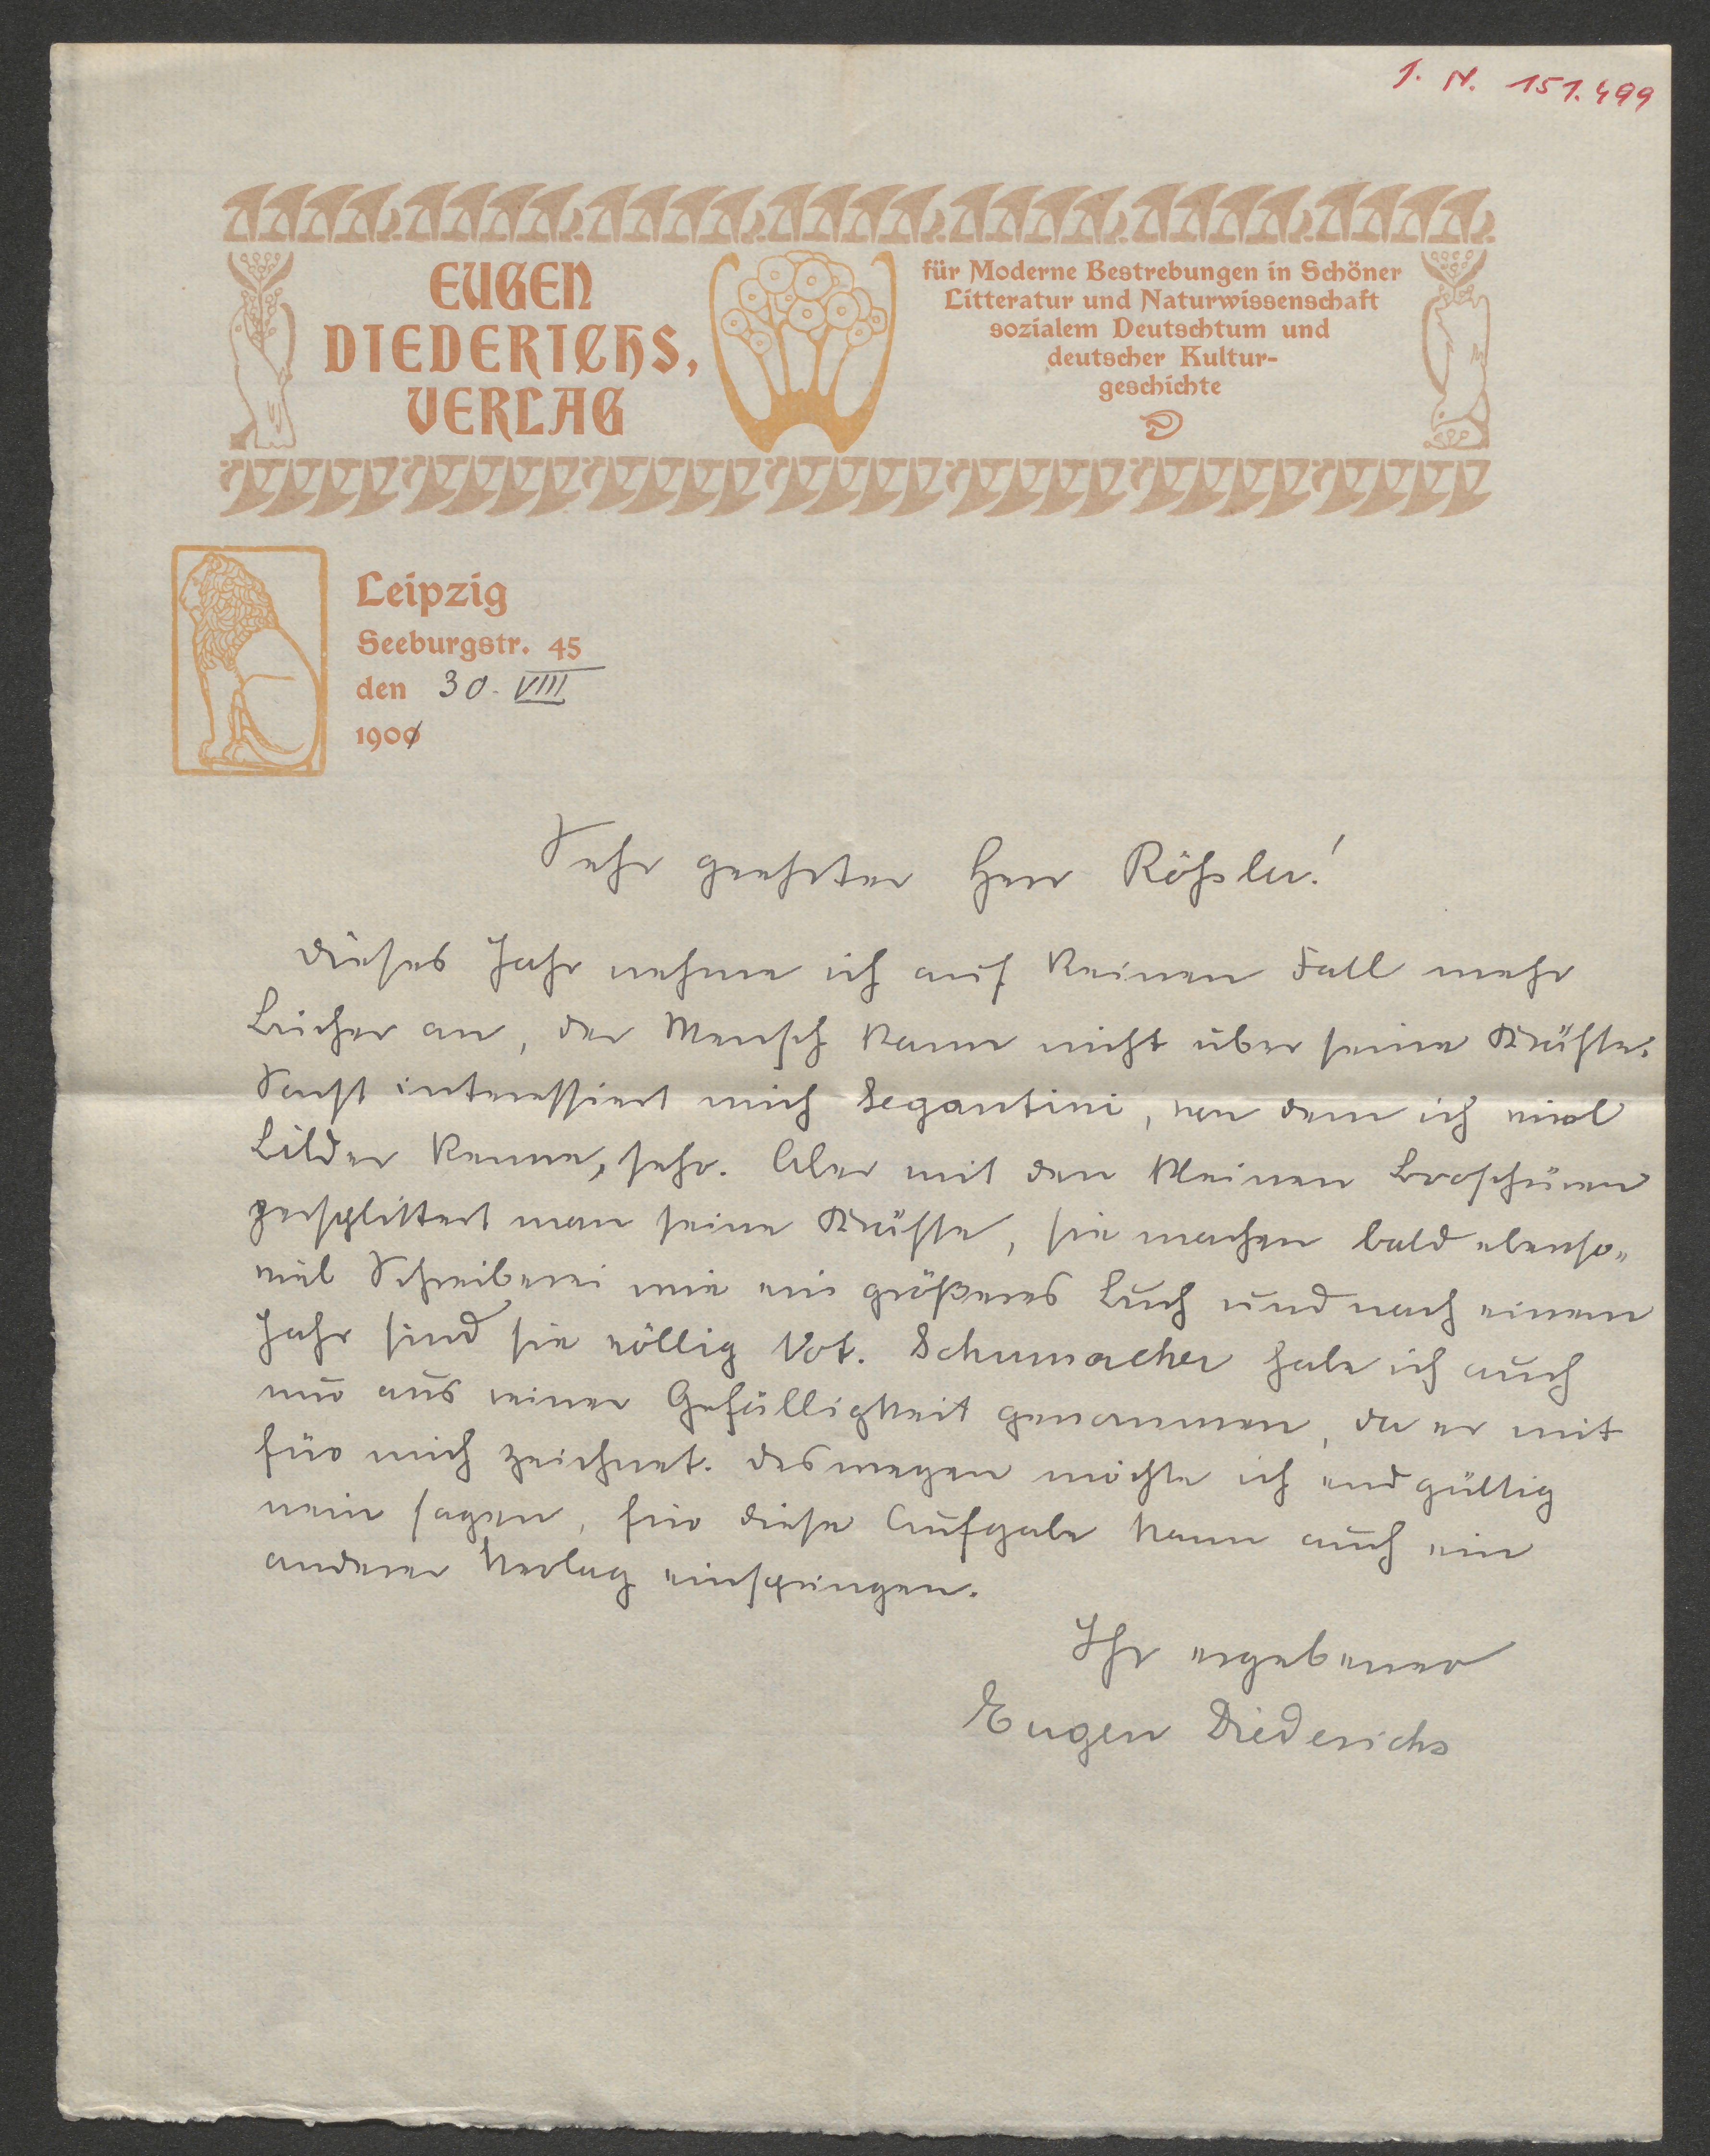 J. N. 151.499
EUGEN
DIEDERICHS,
VERLAG
für Moderne Bestrebungen in Schöner
Litteratur und Naturwissenschaft
sozialem Deutschtum und
deutscher Kultur-
geschichte
Leipzig
Seeburgstr. 45
den 30. VIII
1900
Sehr geehrter Herr Rößler!
Dieses Jahr nehme ich auf keinen Fall mehr
Bücher an, der Mensch kann nicht über seine Kräfte.
Sonst interessiert mich Segantini, von dem ich viel
Bilder kenne, sehr. Aber mit den kleinen Broschüren
zersplittert man seine Kräfte, sie machen bald ebenso-
viel Schreiberei wie ein größeres Buch und nach einem
Jahr sind sie völlig tot. Schumacher habe ich auch
nur aus reiner Gefälligkeit genommen, da er mit
für mich zeichnet. Deswegen möchte ich endgültig
nein sagen, für diese Aufgabe kann auch ein
anderer Verlag einspringen.
Ihr ergebener
Eugen Diederichs